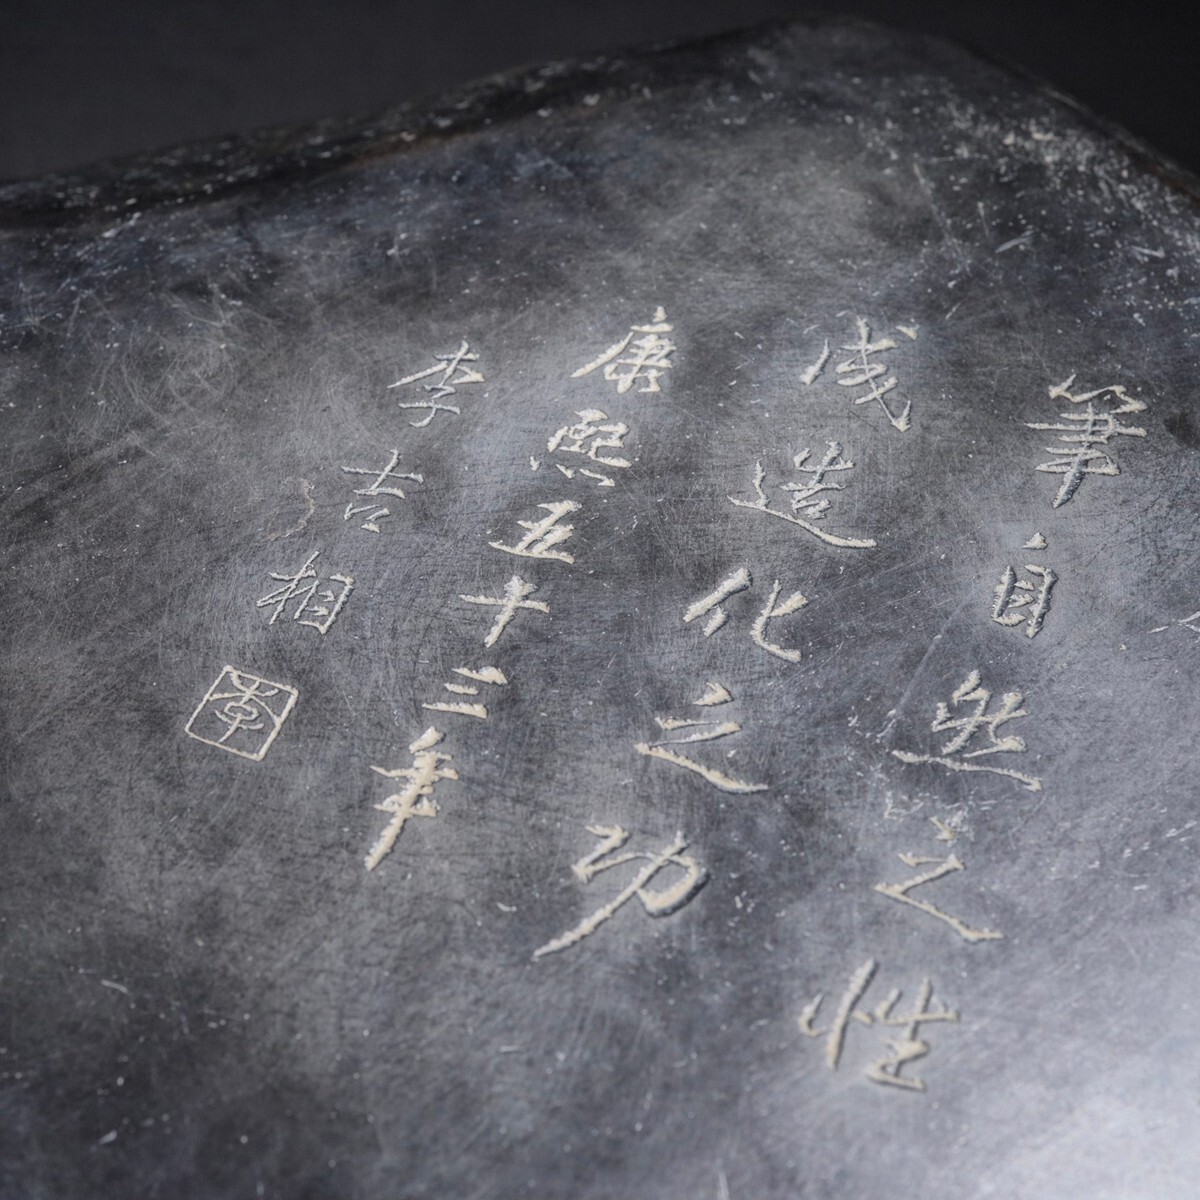 筆自然之性
成造化之功
康熙五十三年
李吉相